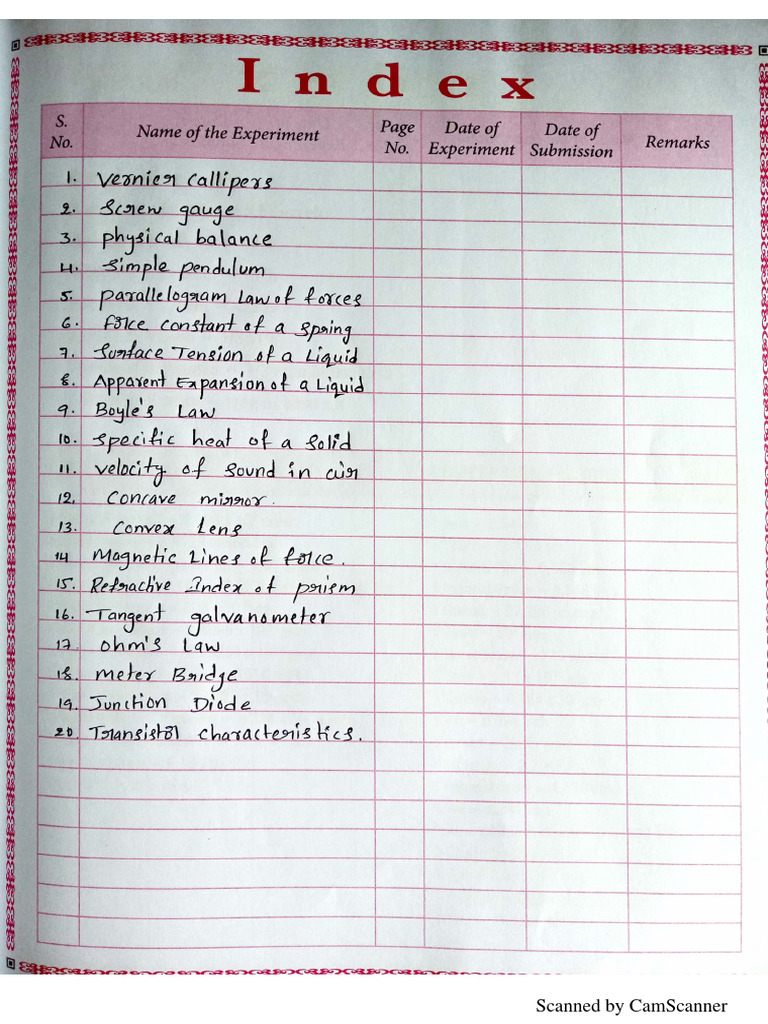 Index
S. No. Name of the Experiment Page No. Date of Experiment Date of Submission Remarks
1. Vernier Callipers
2. Screw gauge
3. physical balance
4. Simple pendulum
5. parallelogram Law of forces
6. force constant of a spring
7. Surface Tension of a Liquid
8. Apparent Expansion of a Liquid
9. Boyle's Law
10. Specific heat of a Solid
11. velocity of Sound in air
12. Concave mirror.
13. Convex Lens
14 Magnetic Lines of force.
15. Refractive Index of prism
16. Tangent galvanometer
17. ohm's Law
18. meter Bridge
19. Junction Diode
20. Transistor characteristics.
Scanned by CamScanner